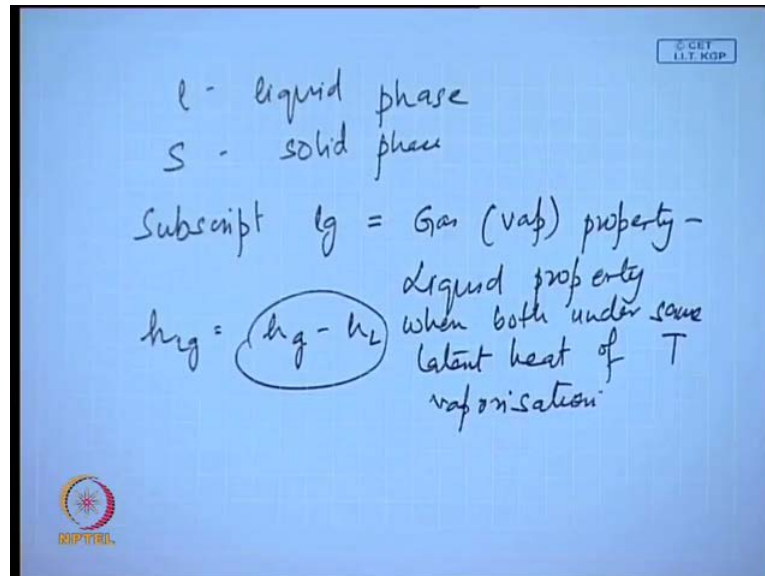 © CET
I.I.T. KGP
l - liquid phase
S - solid phase
Subscript lg = Gas (vap) property -
Liquid property
hlg = hg - hL when both under same
latent heat of T
vaporisation
NPTEL